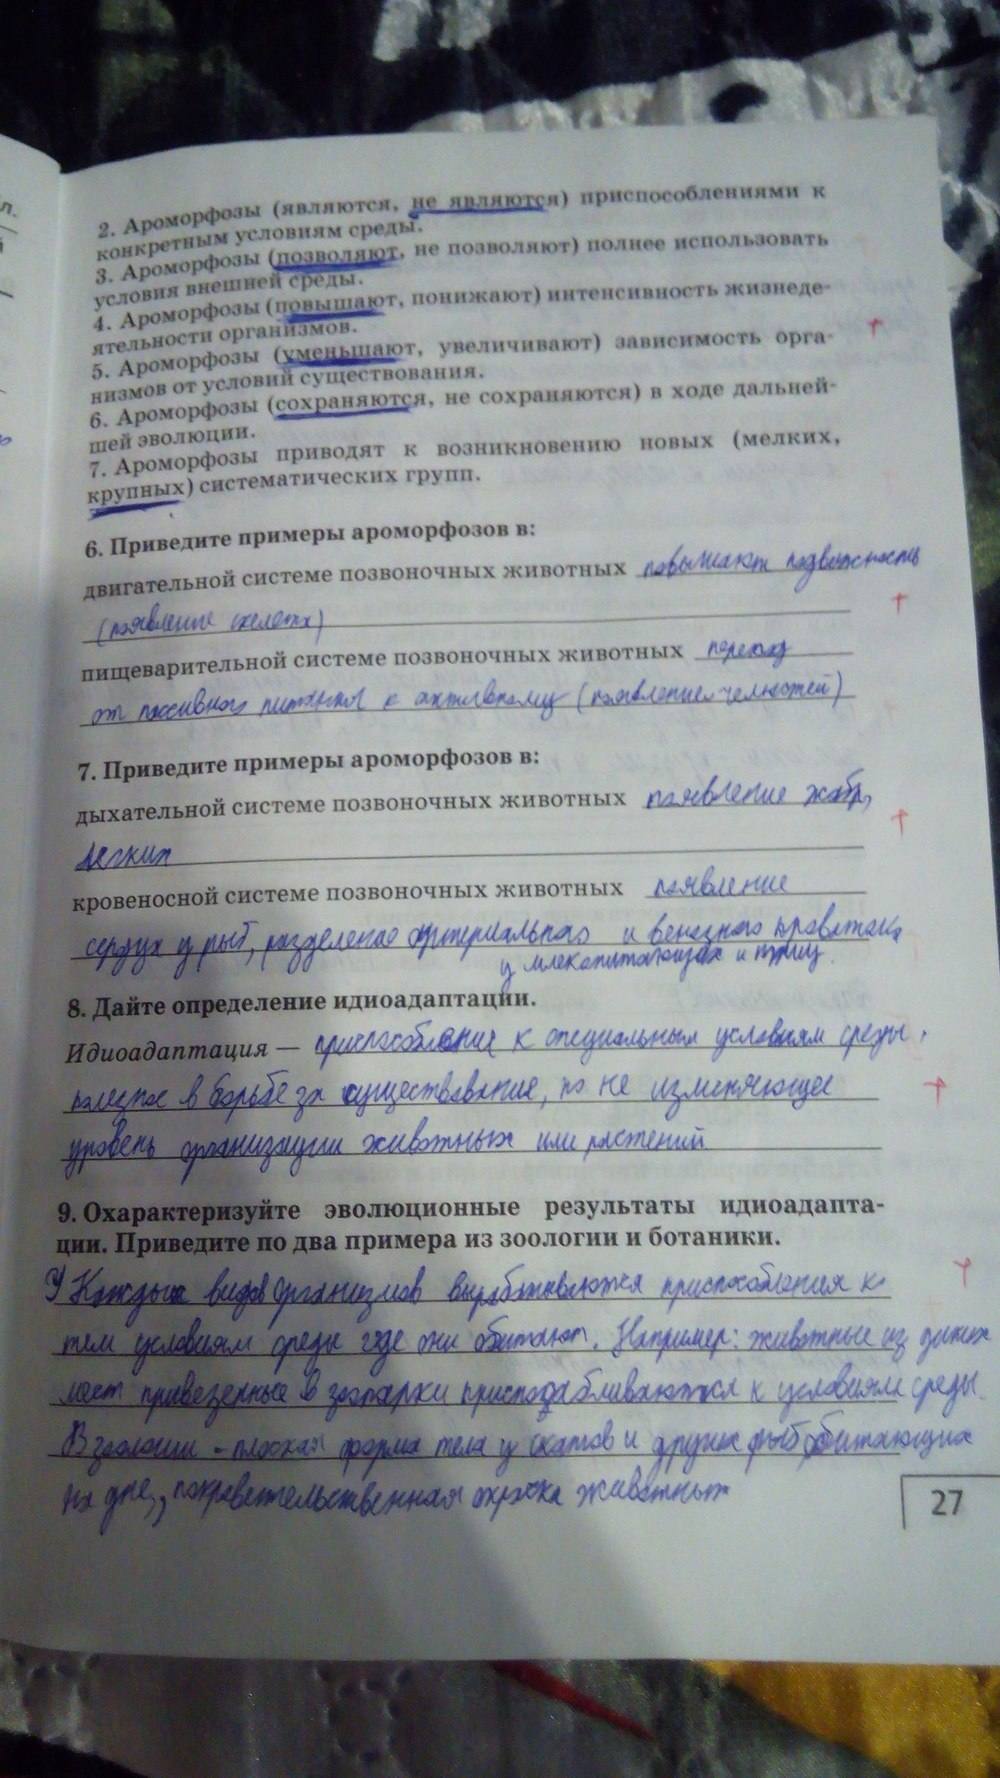 л.
2. Ароморфозы (являются, не являются) приспособлениями к
конкретным условиям среды.
3. Ароморфозы (позволяют, не позволяют) полнее использовать
условия внешней среды.
4. Ароморфозы (повышают, понижают) интенсивность жизнеде-
ятельности организмов.
5. Ароморфозы (уменьшают, увеличивают) зависимость орга-
низмов от условий существования.
6. Ароморфозы (сохраняются, не сохраняются) в ходе дальней-
шей эволюции.
7. Ароморфозы приводят к возникновению новых (мелких,
крупных) систематических групп.
6. Приведите примеры ароморфозов в:
двигательной системе позвоночных животных повышают подвижность
(появление скелета)
пищеварительной системе позвоночных животных переход
от пассивного питания к активному (появление челюстей)
7. Приведите примеры ароморфозов в:
дыхательной системе позвоночных животных появление жабр,
легких
кровеносной системе позвоночных животных появление
сердца у рыб, разделение артериального и венозного кровотока
у млекопитающих и птиц.
8. Дайте определение идиоадаптации.
Идиоадаптация — приспособление к специальным условиям среды,
полезное в борьбе за существование, но не изменяющее
уровень организации животных или растений
9. Охарактеризуйте эволюционные результаты идиоадапта-
ции. Приведите по два примера из зоологии и ботаники.
У каждых видов организмов вырабатываются приспособления к
тем условиям среды где они обитают. Например: животные из диких
мест привезенные в зоопарки приспосабливаются к условиям среды.
В зоологии - плоская форма тела у скатов и других рыб обитающих
на дне, покровительственная окраска животных
27